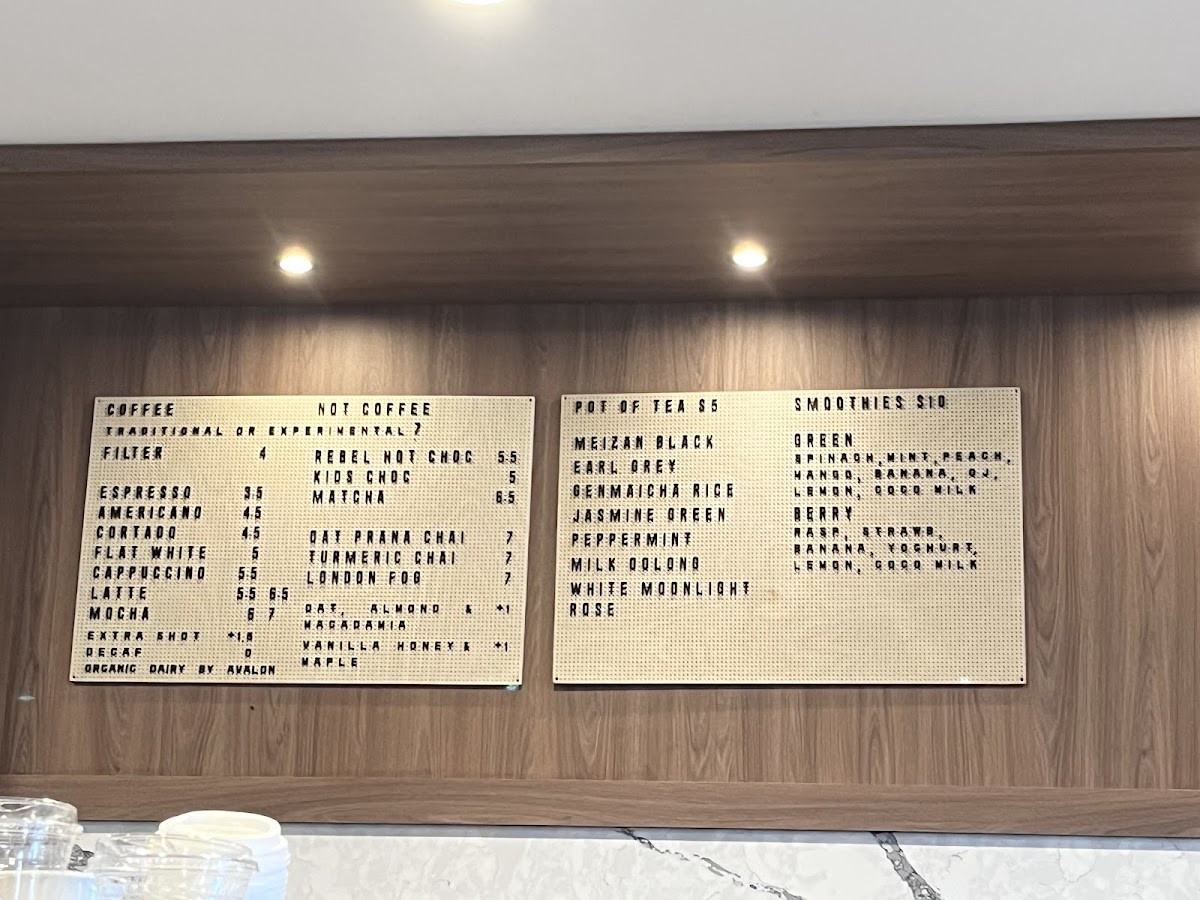 COFFEE
TRADITIONAL OR EXPERIMENTAL?
FILTER 4
ESPRESSO 3.5
AMERICANO 4.5
CORTADO 4.5
FLAT WHITE 5
CAPPUCCINO 5.5
LATTE 5.5 6.5
MOCHA 6 7
EXTRA SHOT +1.5
DECAF 0
ORGANIC DAIRY BY AVALON
NOT COFFEE
REBEL HOT CHOC 5.5
KIDS CHOC 5
MATCHA 6.5
OAT PRANA CHAI 7
TURMERIC CHAI 7
LONDON FOG 7
OAT, ALMOND & +1
MACADAMIA
VANILLA HONEY & +1
MAPLE
POT OF TEA $5
MEIZAN BLACK
EARL GREY
GENMAICHA RICE
JASMINE GREEN
PEPPERMINT
MILK OOLONG
WHITE MOONLIGHT
ROSE
SMOOTHIES $10
GREEN
SPINACH, MINT, PEACH,
MANGO, BANANA, OJ,
LEMON, COCO MILK
BERRY
RASP, STRAWB,
BANANA, YOGHURT,
LEMON, COCO MILK